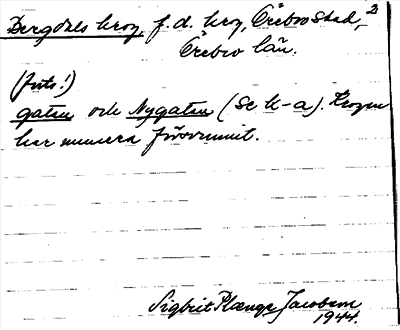 Bergdals krog, f. d. krog, Örebro stad, 2
Örebro län.
(forts!)
gatan och Nygatan (Se k-a). Krogen
har numera försvunnit.
Sigbrit Plænge Jacobson
1944.